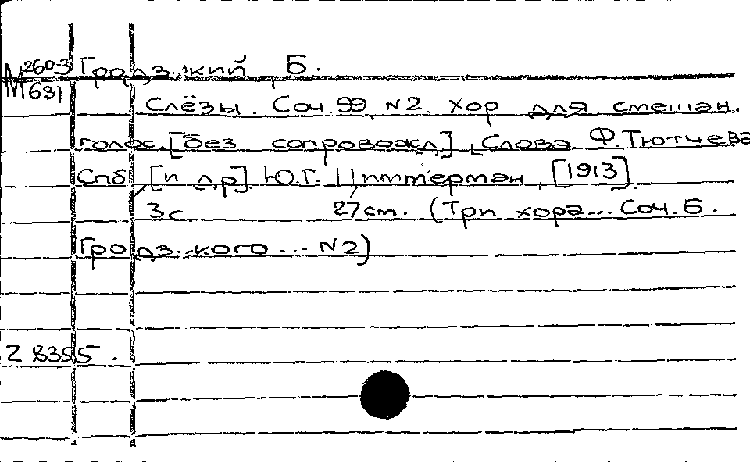 М 260-3 Гродзкий, Б.
М 631
Слёзы. Соч. 99, N2. Хор для смешан.
голос. [без сопровожд.] Слова Ф. Тютчева
Спб. [и др.] Ю.Г. Циммерман, [1913].
3 с. 27 см. (Три хора... Соч. Б.
Гродзкого... N2)
Z 8355.